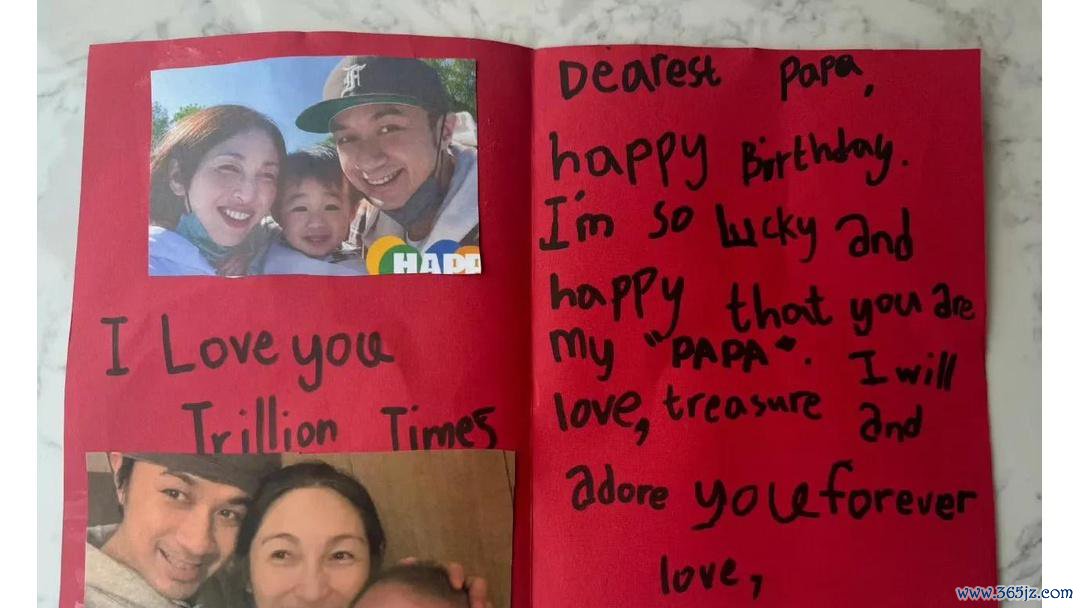 F
HAPP
I Love you
Trillion Times
Dearest Papa,
happy Birthday.
I'm so lucky and
happy that you are
my "PAPA". I will
love, treasure and
adore you forever
love,
www.365jz.com